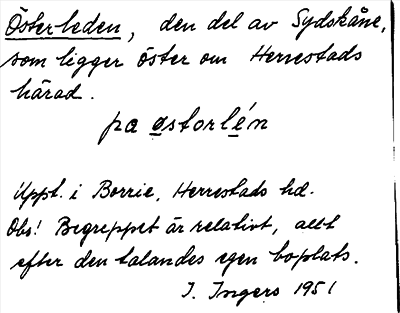 Österleden, den del av Sydskåne,
som ligger öster om Herrestads
härad.
pa østorlén
Uppt. i Borrie, Herrestads hd.
Obs! Begreppet är relativt, allt
efter den talandes egen boplats.
I. Ingers 1951